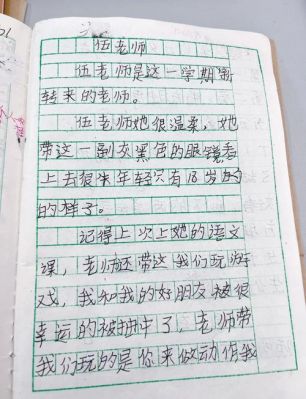 伍老师
伍老师是这一学期新
转来的老师。
伍老师她很温柔，她
带这一副灰黑色的眼镜看
上去很年轻只有18岁的
的样子。
记得上次上她的语文
课，老师还带这我们玩游
戏，我和我的好朋友被很
幸运的被抽中了，老师带
我们玩的是你来做动作我